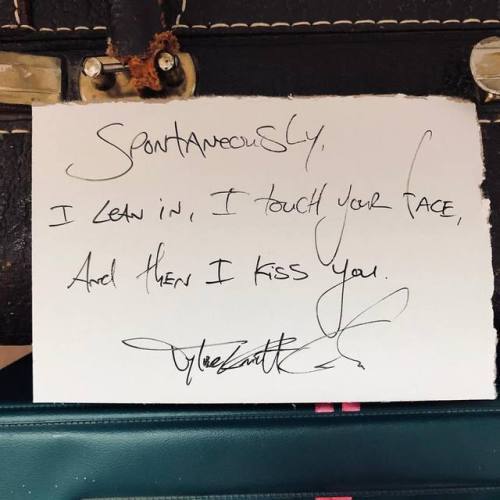 Spontaneously,
I lean in, I touch your face,
And then I kiss you.
Tyler Knott